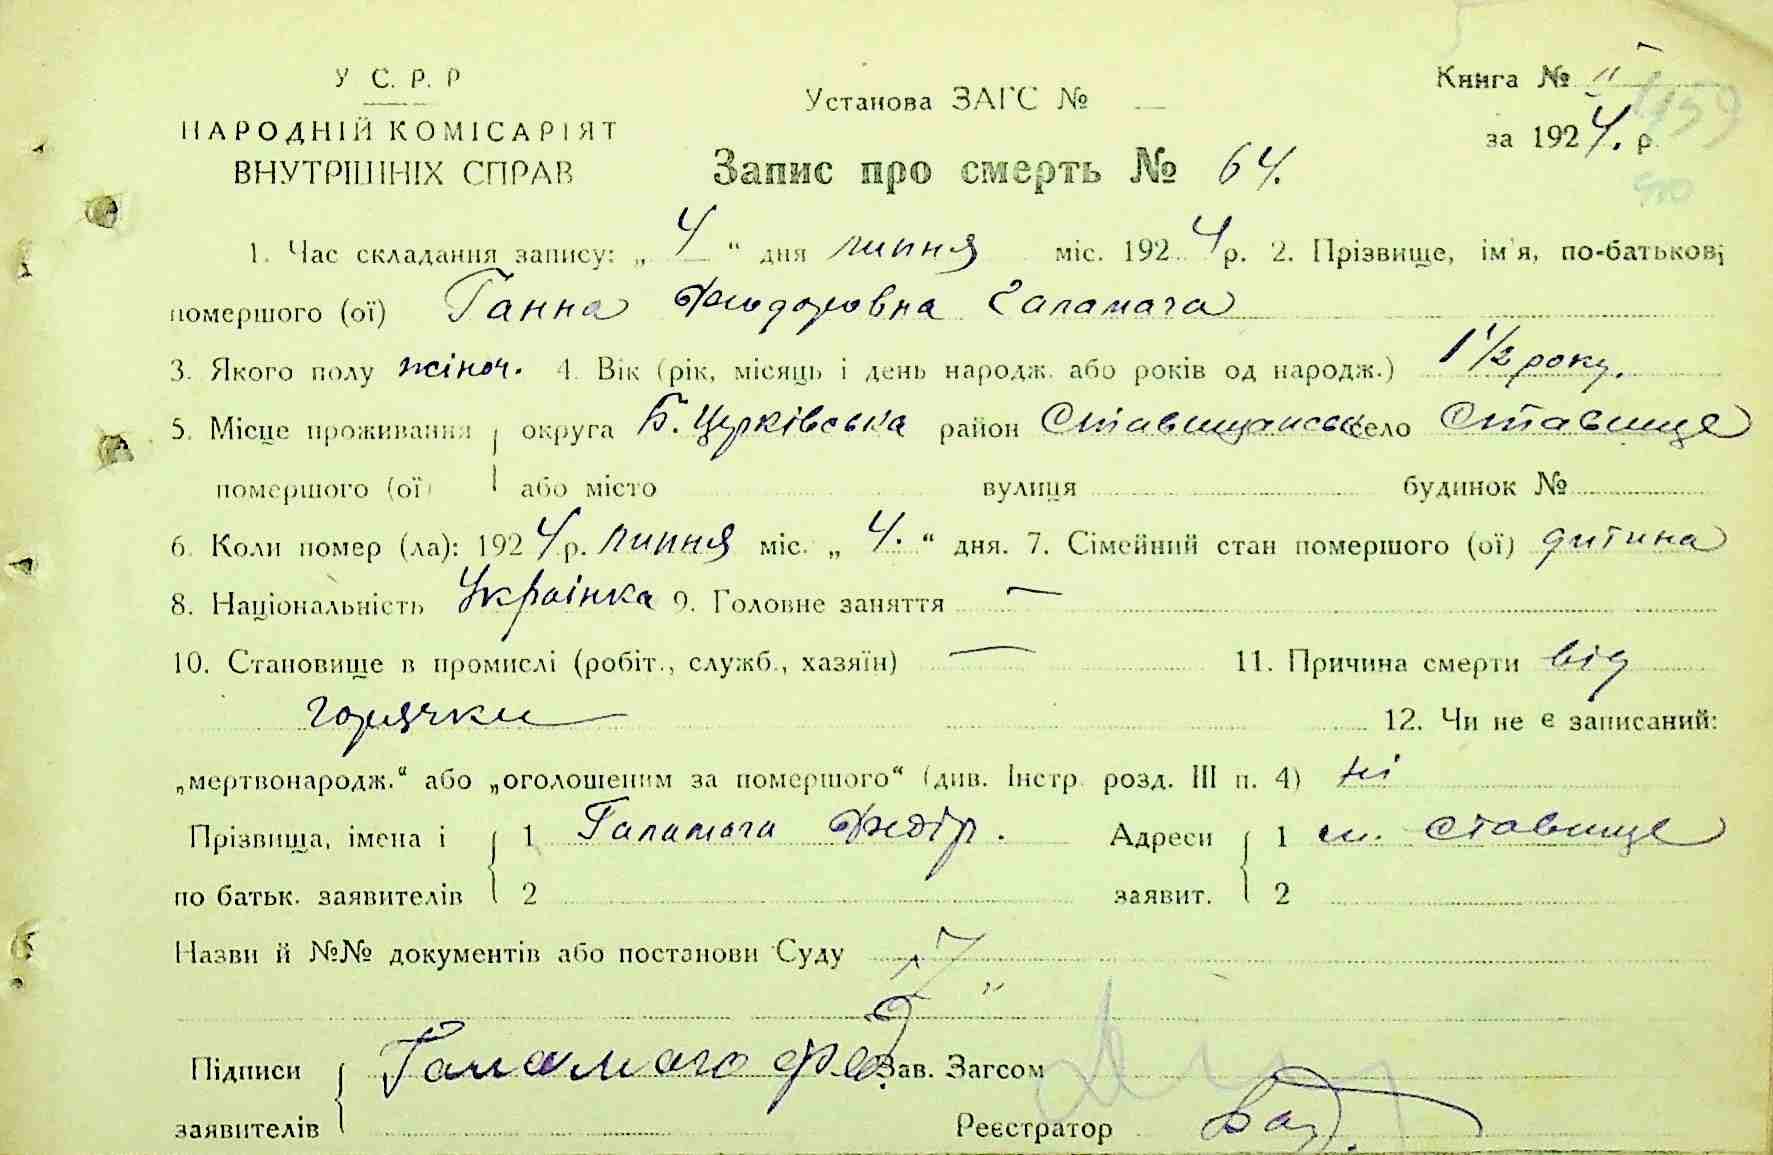 У С. Р. Р
НАРОДНІЙ КОМІСАРІЯТ
ВНУТРІШНІХ СПРАВ
Установа ЗАГС № —
Книга № II
за 1924 р.
Запис про смерть № 64.
1. Час складання запису: „ 4 “ дня липня міс. 1924 р. 2. Прізвище, ім'я, по-батькові
помершого (ої) Ганна Феодоровна Галамага
3. Якого полу жіноч. 4. Вік (рік, місяць і день народж. або років од народж.) 1 1/2 року.
5. Місце проживання округа Б. Церківська район Ставищанськ село Ставище
помершого (ої) або місто вулиця будинок №
6. Коли помер (ла): 1924 р. липня міс. „ 4. “ дня. 7. Сімейний стан помершого (ої) дитина
8. Національність Українка 9. Головне заняття —
10. Становище в промислі (робіт., служб., хазяїн) — 11. Причина смерти від
горячки 12. Чи не є записаний:
„мертвонародж.“ або „оголошеним за помершого“ (див. Інстр. розд. III п. 4) ні
Прізвища, імена і 1 Галамага Федір. Адреси 1 м. Ставище
по батьк. заявителів 2 заявит. 2
Назви й №№ документів або постанови Суду
Підписи Галамаго Фед Зав. Загсом
заявителів Реєстратор